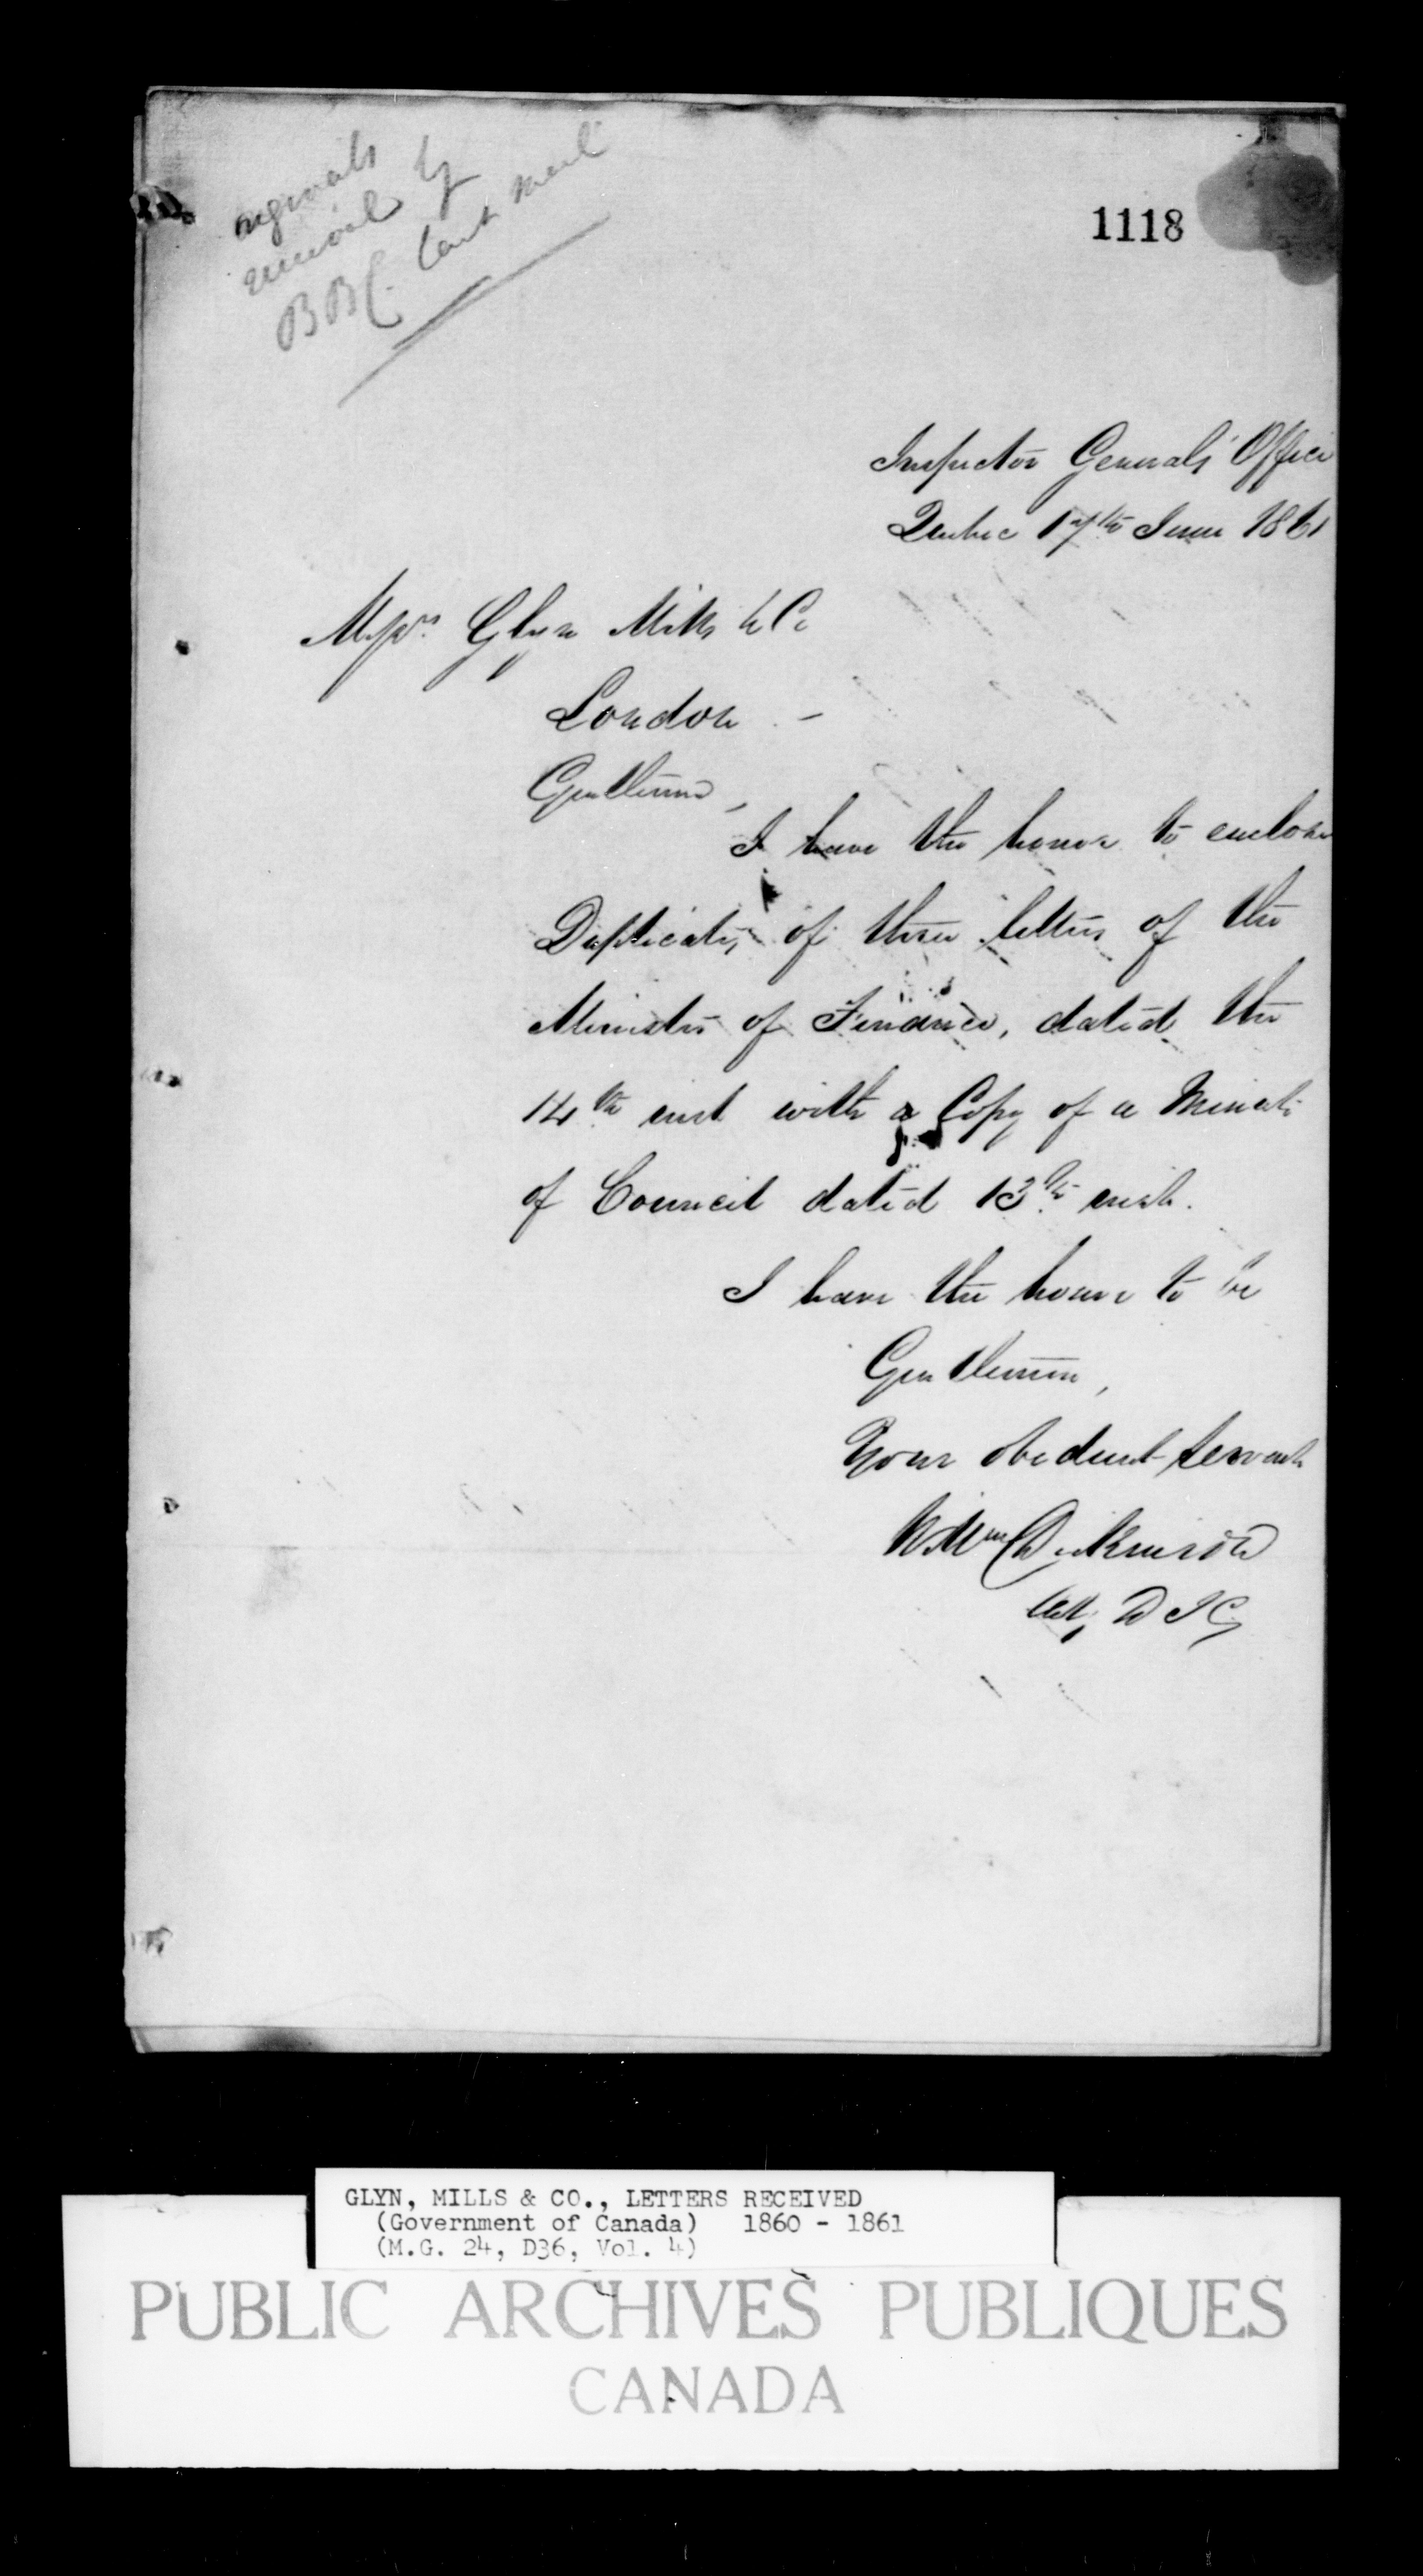 originals
received by
BBC last mail
1118
Inspector Generals' Office
Quebec 17th June 1861
Messrs. Glyn Mills & Co
London -
Gentlemen,
I have the honor to enclose
Duplicates of three letters of the
Minister of Finance, dated the
14th inst with a Copy of a Minute
of Council dated 13th inst.
I have the honor to be
Gentlemen,
Your obedient servant
Wm Dickinson
Actg D I G
GLYN, MILLS & CO., LETTERS RECEIVED
(Government of Canada) 1860 - 1861
(M.G. 24, D36, Vol. 4)
PUBLIC ARCHIVES PUBLIQUES
CANADA